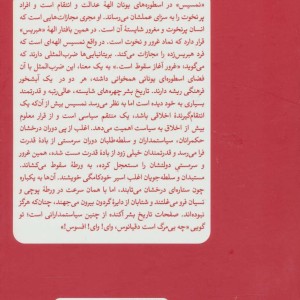 «نمسیس» در اسطوره‌های یونان الههٔ عدالت و انتقام است و افراد
پر نخوت را به سزای عملشان می‌رساند. او مجری مجازات‌هایی است که
انسان پرنخوت و مغرور شایستهٔ آن است. در مقابل هامارتیا «هیبریس»
قرار دارد که نماد غرور و نخوت است. در واقع نمسیس الهه‌ای است که
فرد هیبریس‌زده را مجازات می‌کند. بریتانیایی‌ها ضرب‌المثلی دارند که
می‌گوید: «غرور آغاز سقوط است.» به یک معنا، این ضرب‌المثل با آن
فضای اسطوره‌ای یونانی همخوانی داشته، هر دو در یک آبشخور
فرهنگی ریشه دارند. تاریخ بشر چهره‌های شایسته، عالی‌رتبه و قدرتمند
بسیاری به خود دیده است اما به نظر می‌رسد نمسیس بیش از آن‌که یک
انتقام‌گیرندهٔ اخلاقی باشد، یک منتقم سیاسی است و از قرار معلوم
بیش از اخلاق به سیاست اهمیت می‌دهد. اغلب از پی دوران درخشان
حکمرانان، سیاستمداران و سلطه‌طلبان دوران سرمستی از بادهٔ قدرت
فرا می‌رسد و قدرتمندان خیلی زود از بادهٔ قدرت مست شده، همین غرور
و سرمستی دولتشان را مستعجل کرده، به ورطهٔ سقوط می‌کشاند.
مستبدان و سلطه‌جویان اغلب اسیر خودکامگی خویشند. آن‌ها به یکباره
چون ستاره‌ای درخشان می‌تابند، اما با همان سرعت در ورطهٔ پوچی و
نسیان فرو می‌غلتند و شتابان از دایرهٔ گردون بیرون می‌جهند، چنان‌که هرگز
نبوده‌اند. صفحات تاریخ بشر آکنده از چنین سیاستمدارانی است؛ تو
گویی «چه بی‌مرگ است دقیانوس، وای! وای! افسوس!»